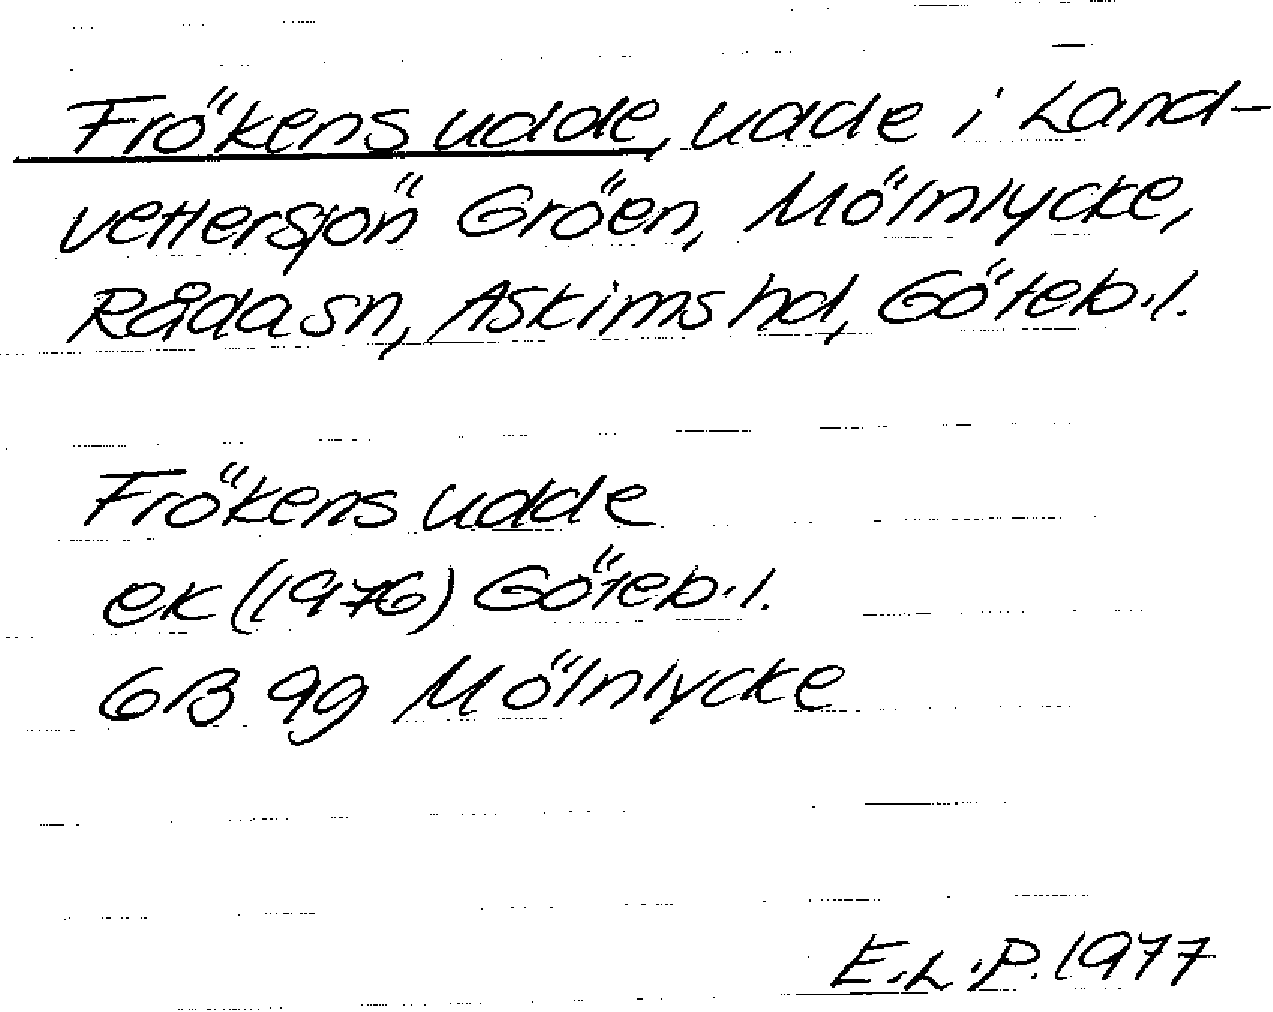 Frökens udde, udde i Land-
vettersjön Gröen, Mölnlycke,
Råda sn, Askims hd, Göteb.l.
Frökens udde
ek (1976) Göteb.l.
6B 9g Mölnlycke
E.L.P. 1977